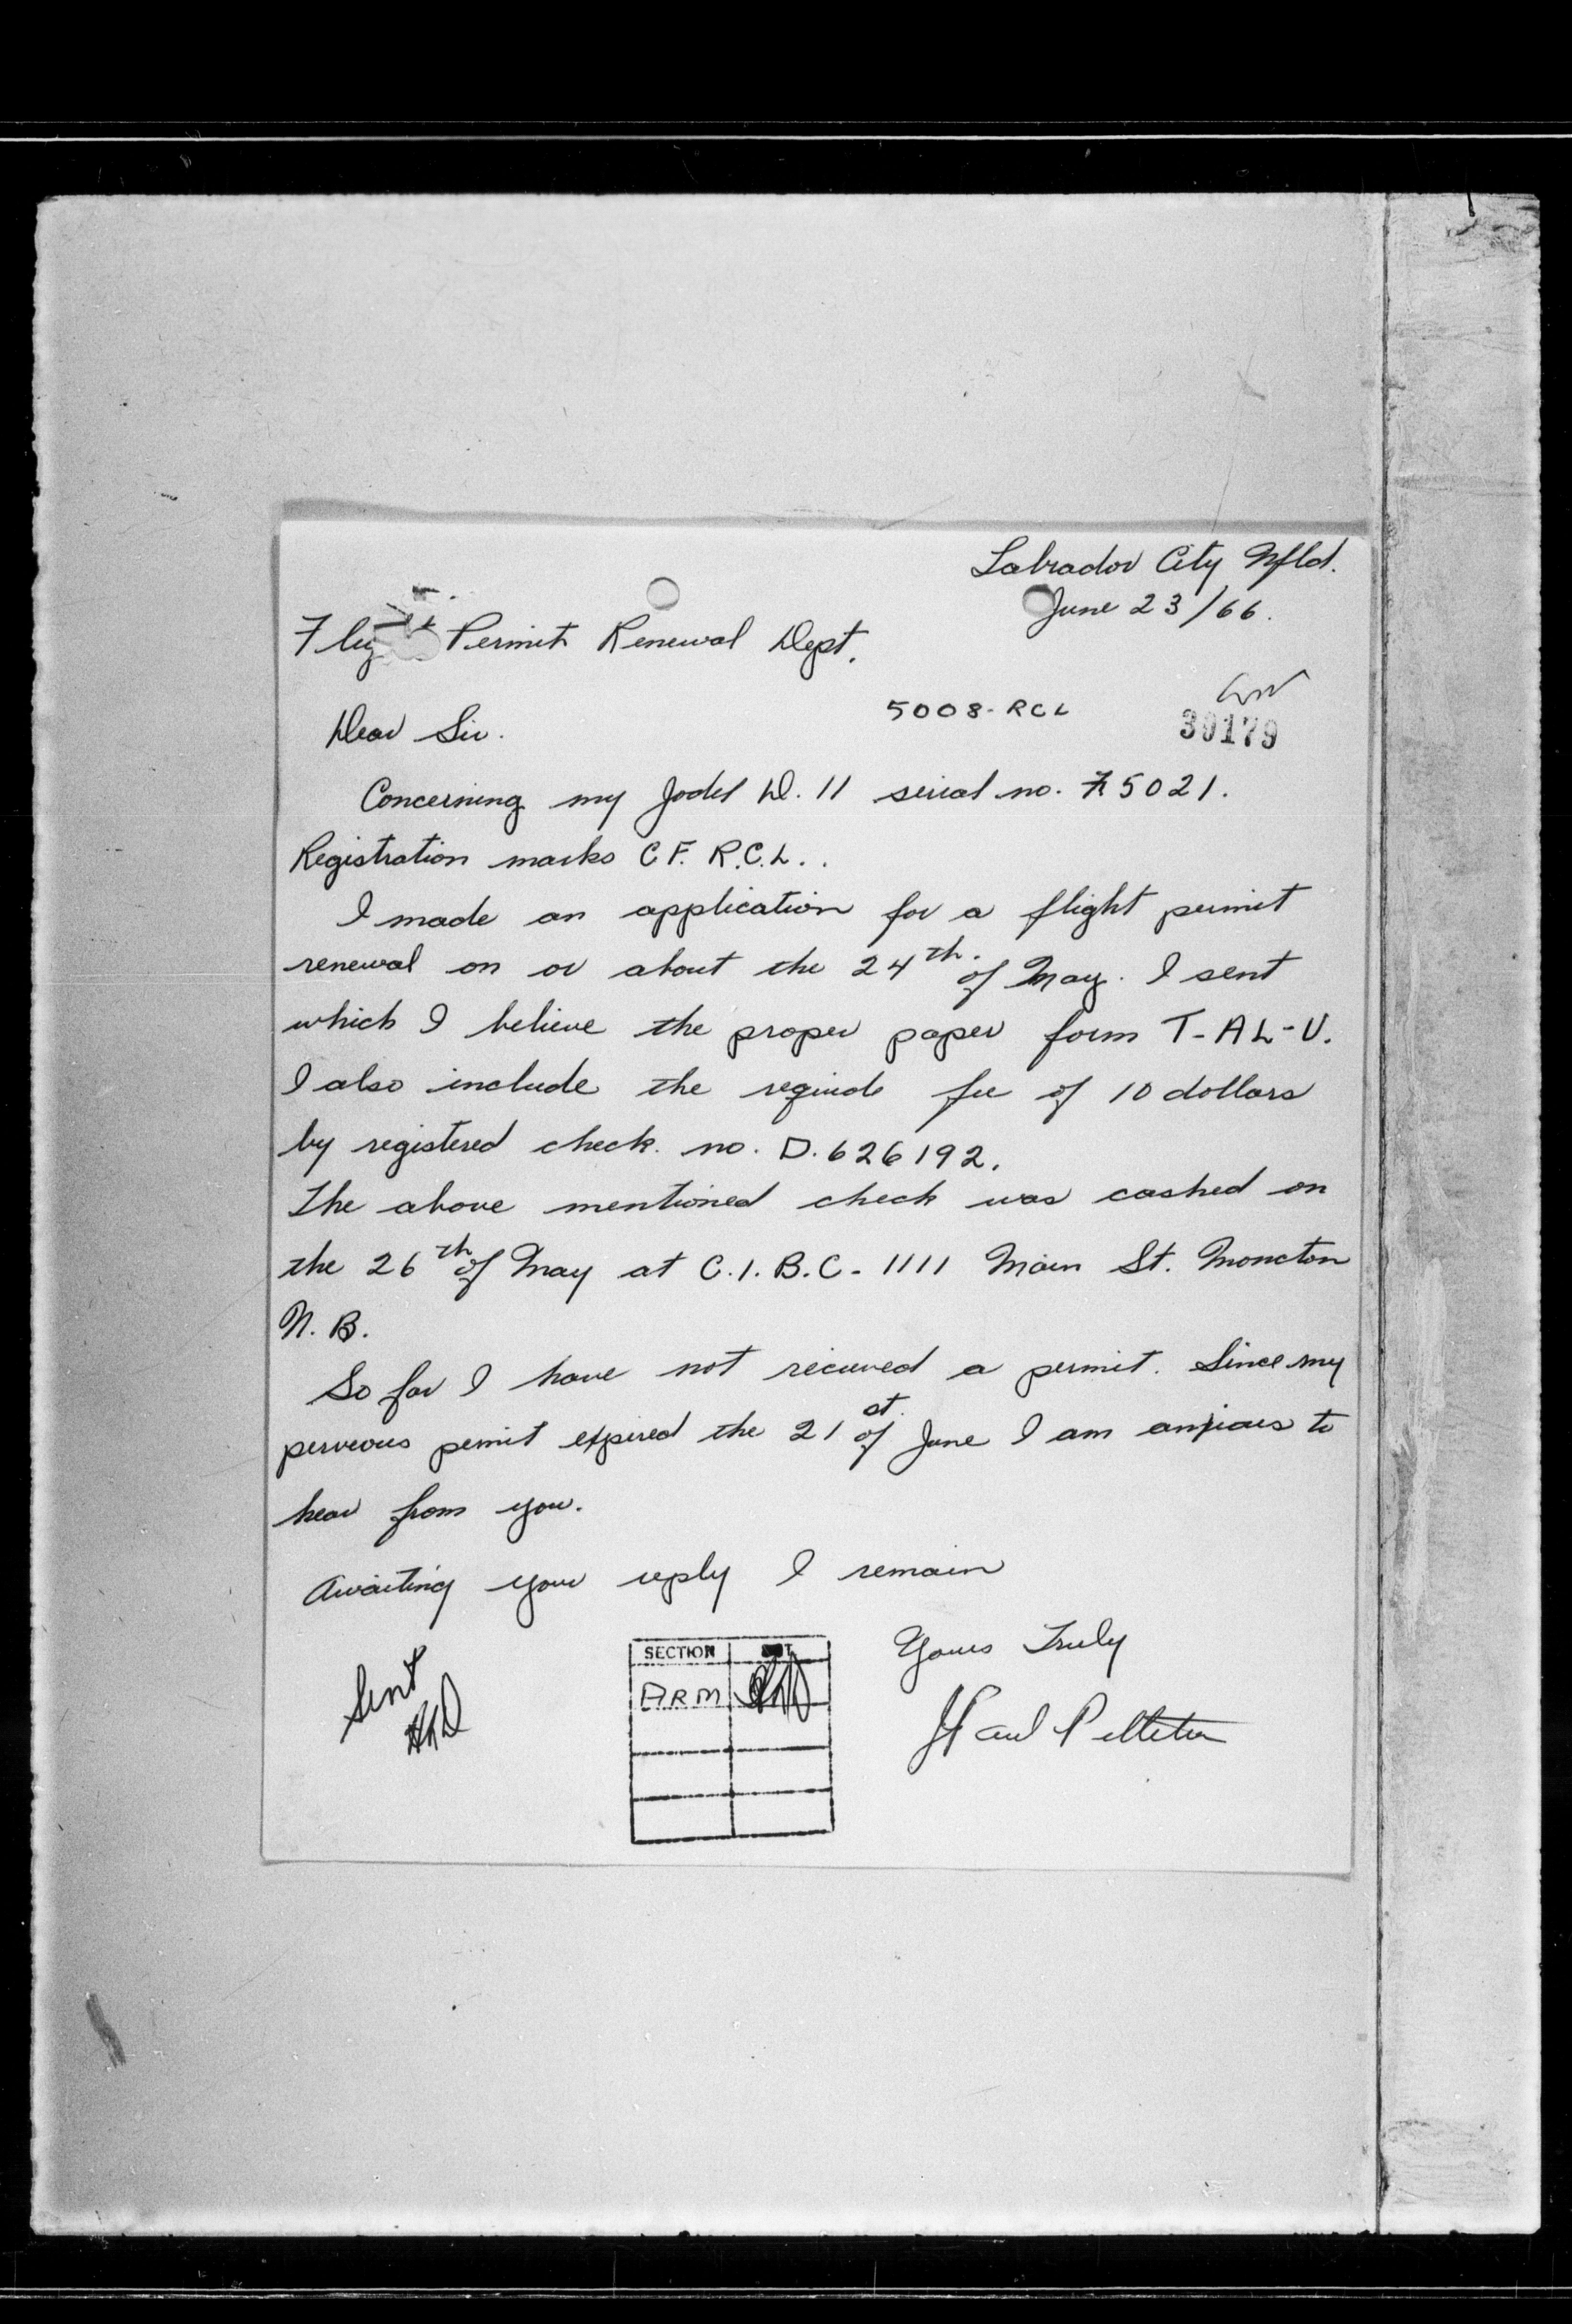 Labrador City Nfld.
June 23/66.
Permit Renewal Dept.
5008-RCL
39179
Dear Sir.
Concerning my Jodel D. 11 serial no. 5021.
Registration marks C F. R.C.L..
I made an application for a flight permit
renewal on or about the 24th. of May. I sent
which I believe the proper paper form T-AL-V.
I also include the requide fee of 10 dollars
by registered check. no. D. 626192.
The above mentioned check was cashed on
the 26th of May at C.I.B.C- 1111 Main St. Moncton
N. B.
So far I have not recieved a permit. Since my
pervious permit expired the 21st. of June I am anxious to
hear from you.
Awaiting your reply I remain
Yours Truly
J Paul Pelletier
Sent
SECTION
ARM